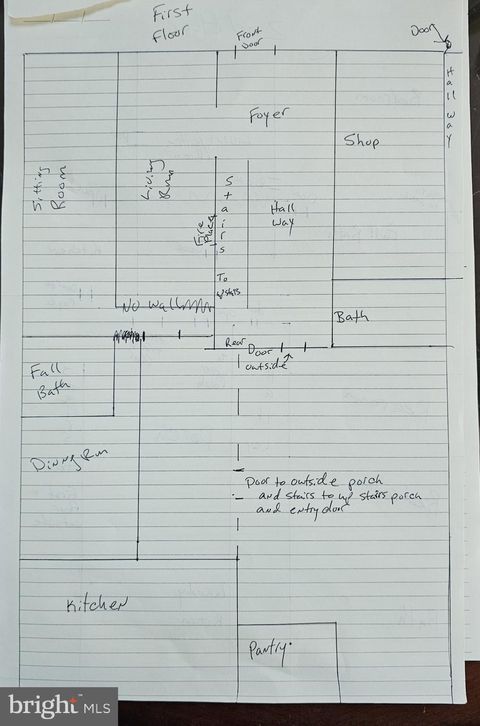 First
Floor
Front
Door
Door
Hall way
Foyer
Shop
Sitting
Room
Living
Rm
Fire
Place
Stairs
To
upstairs
Hall
way
No wall
Bath
Rear
Door
outside
Full
Bath
Dining Rm
Door to outside porch
and stairs to up stairs porch
and entry door
Kitchen
Pantry
bright MLS